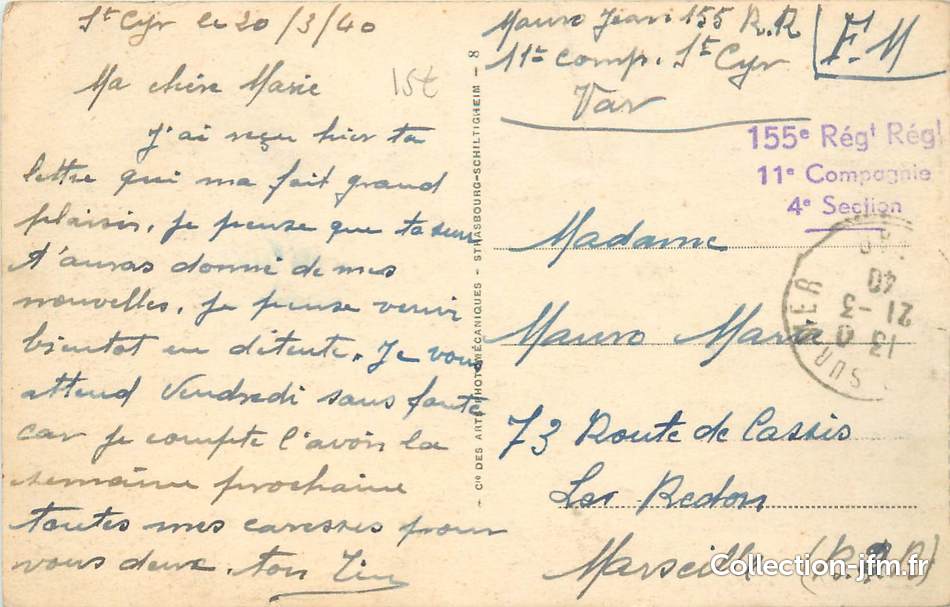 St Cyr le 20/3/40
Ma chère Marie
15€
J'ai reçu hier ta
lettre qui ma fait grand
plaisir, je pense que ta sœur
t'auras donné de mes
nouvelles, je pense venir
bientot en détente. Je vous
attend Vendredi sans faute
car je compte l'avoir la
semaine prochaine
toutes mes caresses pour
vous deux. ton
- Cie DES ARTS PHOTOMÉCANIQUES - STRASBOURG-SCHILTIGHEIM - 8
Mauro Jean 155 R.R
11me comp. St Cyr
Var
F.M
155e Régt Régl
11e Compagnie
4e Section
SUR MER
13
21-3
40
Madame
Mauro Marie
73 Route de Cassis
Le Redon
Marseille (B.d.R)
Collection-jfm.fr